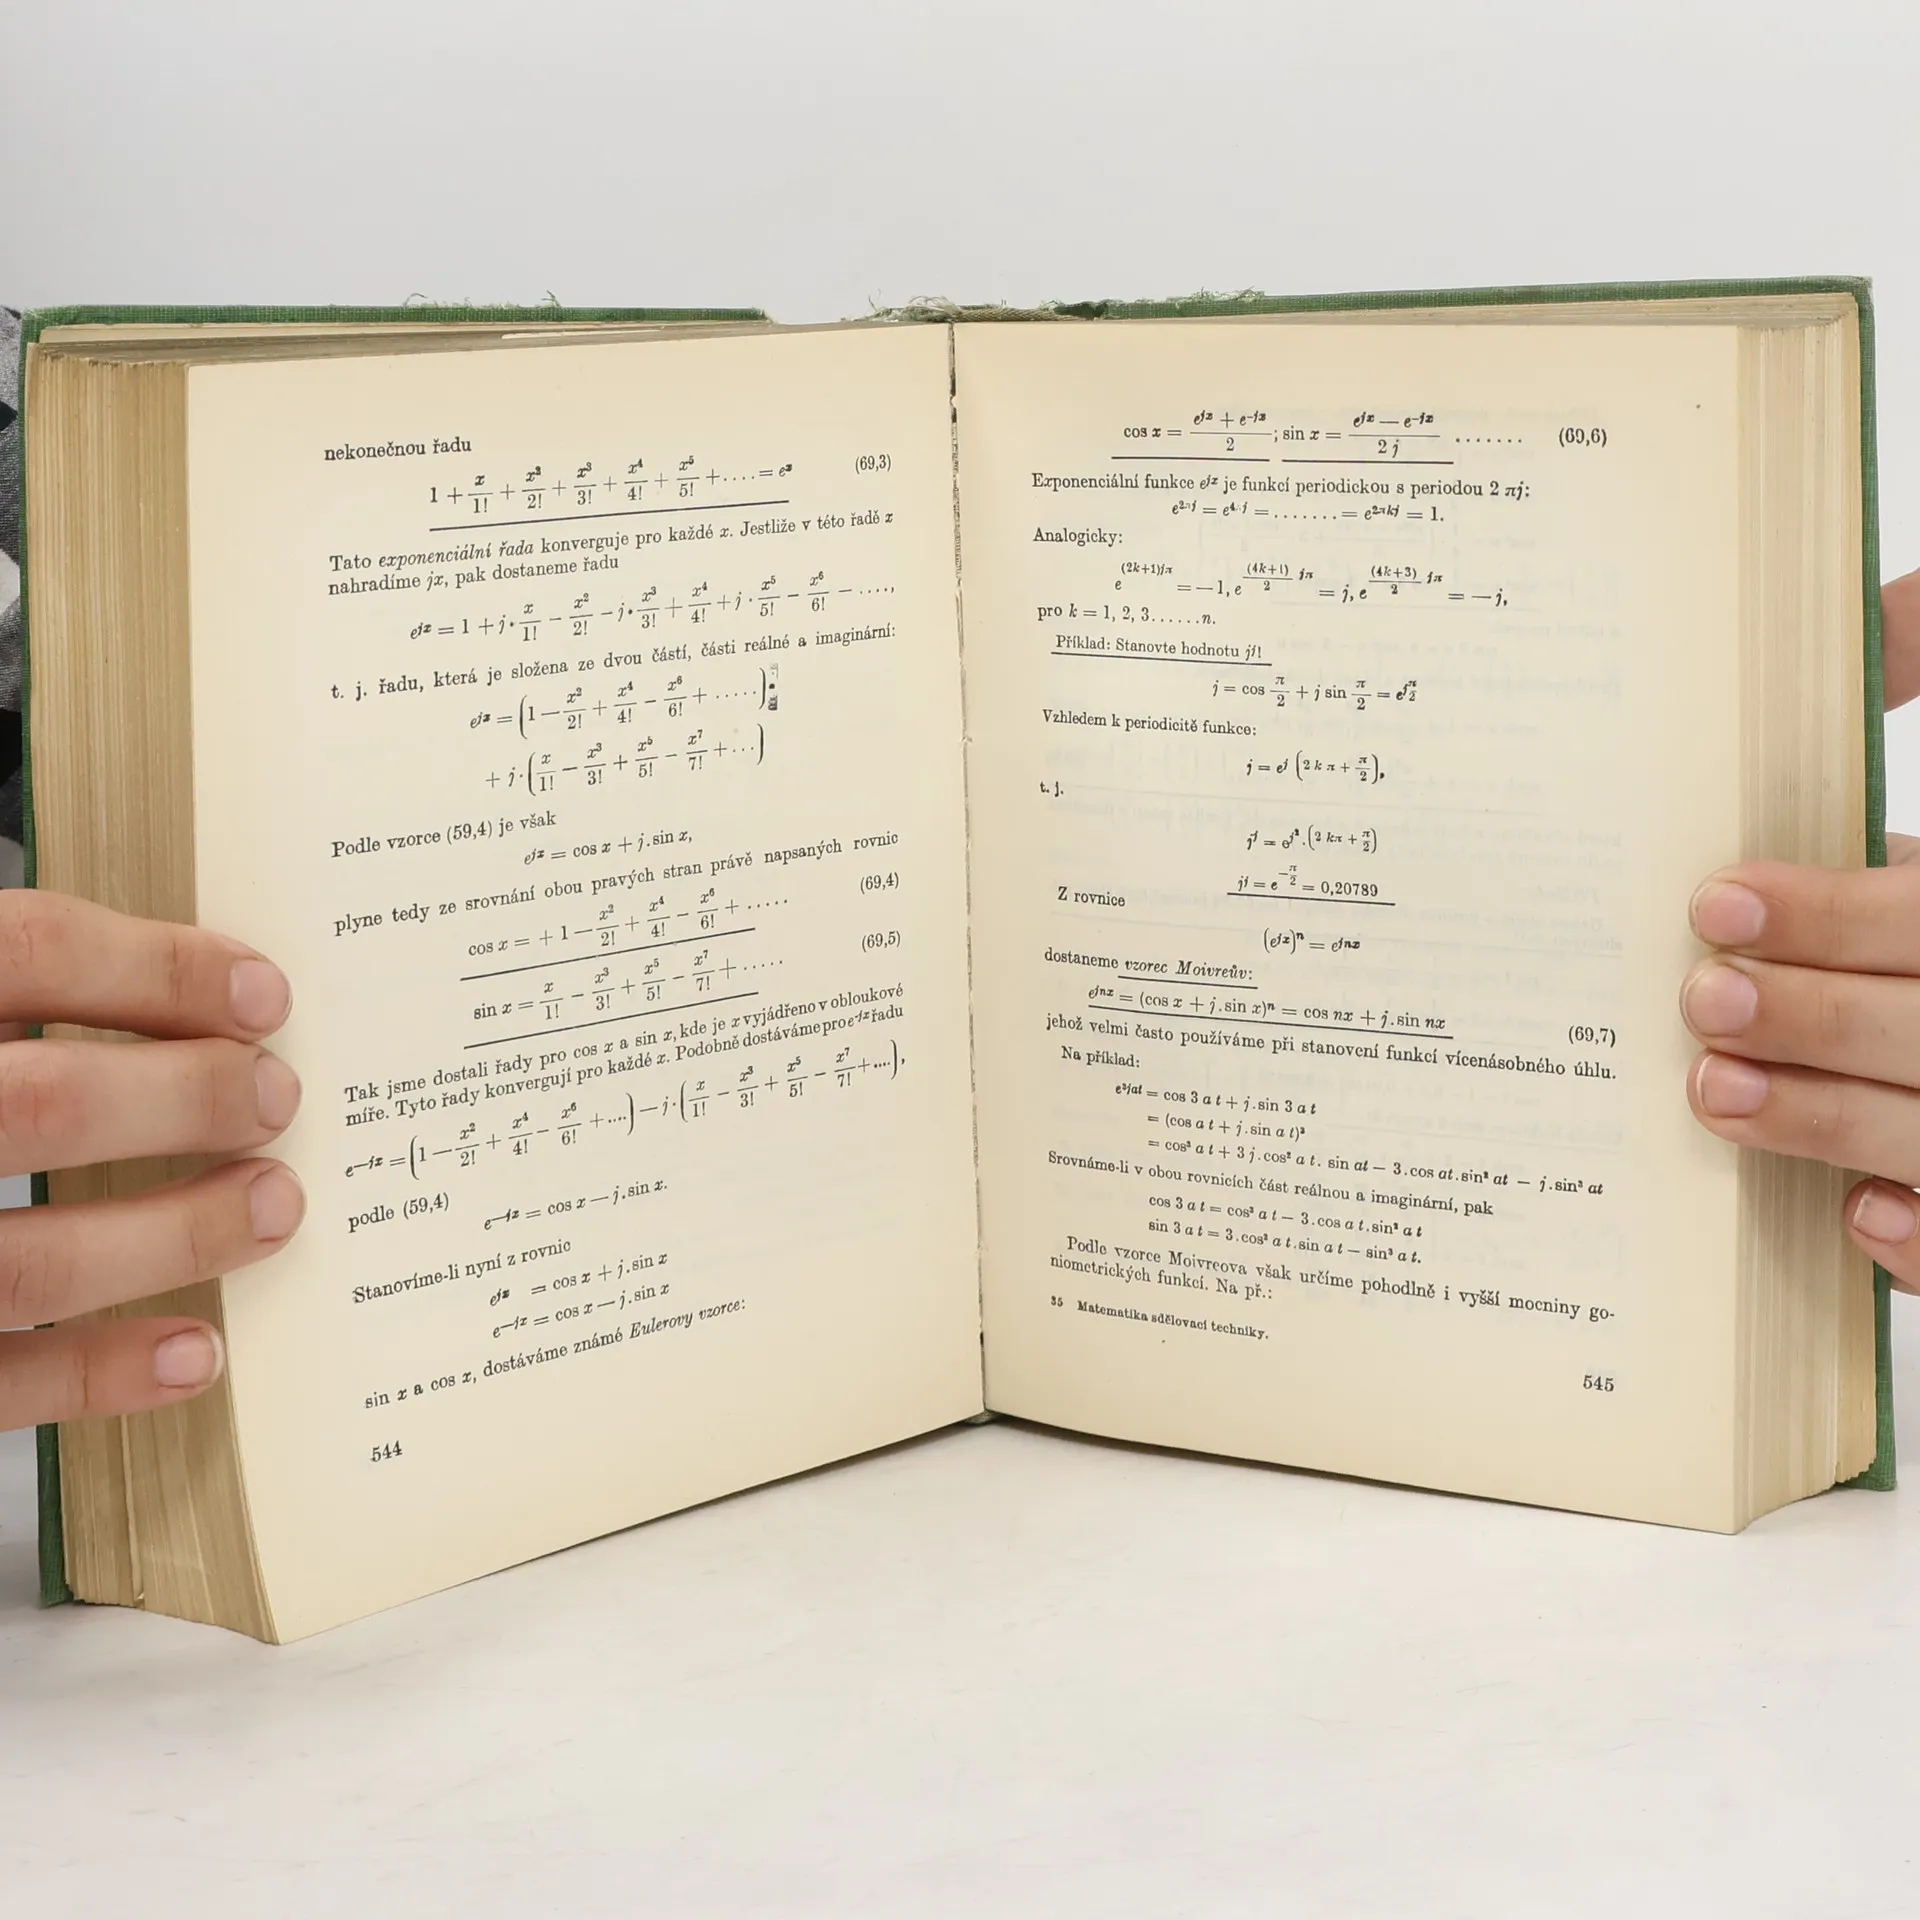 nekonečnou řadu
1 + x/1! + x²/2! + x³/3! + x⁴/4! + x⁵/5! + .... = eˣ (69,3)
Tato exponenciální řada konverguje pro každé x. Jestliže v této řadě x
nahradíme jx, pak dostaneme řadu
eʲˣ = 1 + j · x/1! − x²/2! − j · x³/3! + x⁴/4! + j · x⁵/5! − x⁶/6! − ....,
t. j. řadu, která je složena ze dvou částí, části reálné a imaginární:
eʲˣ = (1 − x²/2! + x⁴/4! − x⁶/6! + .....)
+ j · (x/1! − x³/3! + x⁵/5! − x⁷/7! + ...)
Podle vzorce (59,4) je však
eʲˣ = cos x + j . sin x,
plyne tedy ze srovnání obou pravých stran právě napsaných rovnic
cos x = + 1 − x²/2! + x⁴/4! − x⁶/6! + ..... (69,4)
sin x = x/1! − x³/3! + x⁵/5! − x⁷/7! + ..... (69,5)
Tak jsme dostali řady pro cos x a sin x, kde je x vyjádřeno v obloukové
míře. Tyto řady konvergují pro každé x. Podobně dostáváme pro e⁻ʲˣ řadu
e⁻ʲˣ = (1 − x²/2! + x⁴/4! − x⁶/6! + ....) − j · (x/1! − x³/3! + x⁵/5! − x⁷/7! + ....),
podle (59,4)
e⁻ʲˣ = cos x − j . sin x.
Stanovíme-li nyní z rovnic
eʲˣ = cos x + j . sin x
e⁻ʲˣ = cos x − j . sin x
sin x a cos x, dostáváme známé Eulerovy vzorce:
544
cos x = (eʲˣ + e⁻ʲˣ)/2 ; sin x = (eʲˣ − e⁻ʲˣ)/(2 j) ....... (69,6)
Exponenciální funkce eʲˣ je funkcí periodickou s periodou 2 πj:
= ....... = e^(2πkj) = 1.
Analogicky:
e^((2k+1)jπ) = −1, e^((4k+1)/2 jπ) = j, e^((4k+3)/2 jπ) = −j,
pro k = 1, 2, 3......n.
Příklad: Stanovte hodnotu jʲ!
j = cos π/2 + j sin π/2 = e^(j π/2)
Vzhledem k periodicitě funkce:
j = eʲ (2 k π + π/2),
t. j.
jʲ = e^(j²) . (2 kπ + π/2)
jʲ = e^(−π/2) = 0,20789
Z rovnice
(eʲˣ)ⁿ = eʲⁿˣ
dostaneme vzorec Moivreův:
eʲⁿˣ = (cos x + j . sin x)ⁿ = cos nx + j . sin nx (69,7)
jehož velmi často používáme při stanovení funkcí vícenásobného úhlu.
Na příklad:
e³ʲᵃᵗ = cos 3 a t + j . sin 3 a t
= (cos a t + j . sin a t)³
= cos³ a t + 3 j . cos² a t . sin at − 3 . cos at . sin² at − j . sin³ at
Srovnáme-li v obou rovnicích část reálnou a imaginární, pak
cos 3 a t = cos³ a t − 3 . cos a t . sin² a t
sin 3 a t = 3 . cos² a t . sin a t − sin³ a t.
Podle vzorce Moivreova však určíme pohodlně i vyšší mocniny go-
niometrických funkcí. Na př.:
35 Matematika sdělovací techniky.
545